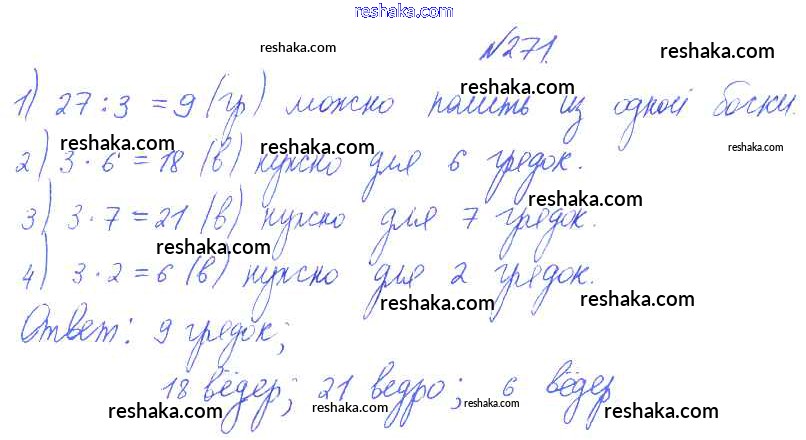 reshaka.com
№271.
reshaka.com reshaka.com
1) 27 : 3 = 9 (гр) можно полить из одной бочки.
reshaka.com
2) 3 · 6 = 18 (в) нужно для 6 грядок.
reshaka.com reshaka.com reshaka.com
3) 3 · 7 = 21 (в) нужно для 7 грядок.
reshaka.com reshaka.com
4) 3 · 2 = 6 (в) нужно для 2 грядок.
reshaka.com reshaka.com
Ответ: 9 грядок;
18 вёдер; 21 ведро; 6 вёдер
reshaka.com reshaka.com reshaka.com reshaka.com